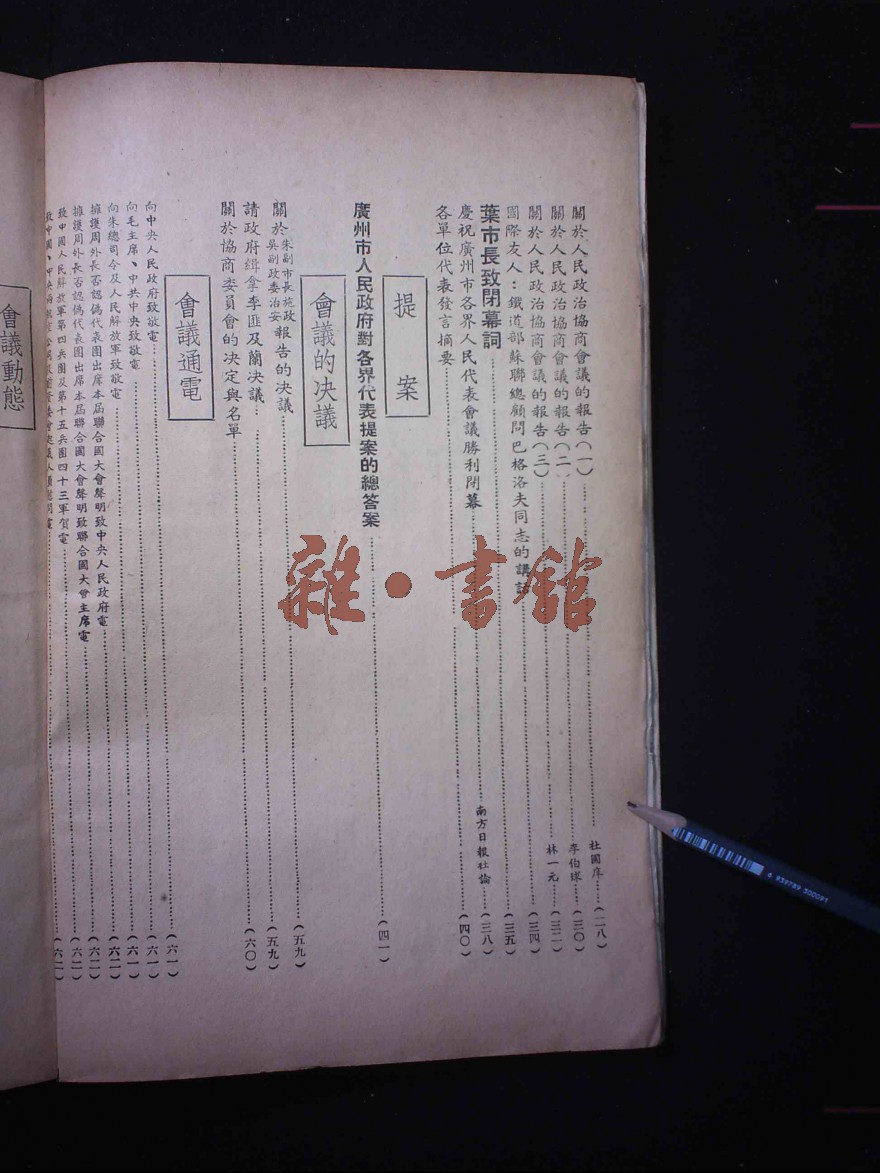 關於人民政治協商會議的報告(一)……杜國庠……(二八)
關於人民政治協商會議的報告(二)……李伯球……(三〇)
關於人民政治協商會議的報告(三)……林一元……(三二)
國際友人:鐵道部蘇聯總顧問巴格洛夫同志的講話……(三四)
葉市長致閉幕詞……(三五)
慶祝廣州市各界人民代表會議勝利閉幕……南方日報社論……(三八)
各單位代表發言摘要……(四〇)
提案
廣州市人民政府對各界代表提案的總答案……(四一)
會議的決議
關於朱副市長施政吳副政委治安報告的決議……(五九)
請政府緝拿李匪及蘭決議……(五九)
關於協商委員會的決定與名單……(六〇)
會議通電
向中央人民政府致敬電……(六一)
向毛主席、中共中央致敬電……(六一)
向朱總司令及人民解放軍致敬電……(六一)
擁護周外長否認偽代表團出席本屆聯合國大會聲明致中央人民政府電……(六二)
擁護周外長否認偽代表團出席本屆聯合國大會聲明致聯合國大會主席電……(六二)
致中國人民解放軍第四兵團及第十五兵團四十三軍賀電……(六二)
致中國、中央兩航空公司……電……(六二)
會議動態
雜·書館
6 939789 300091